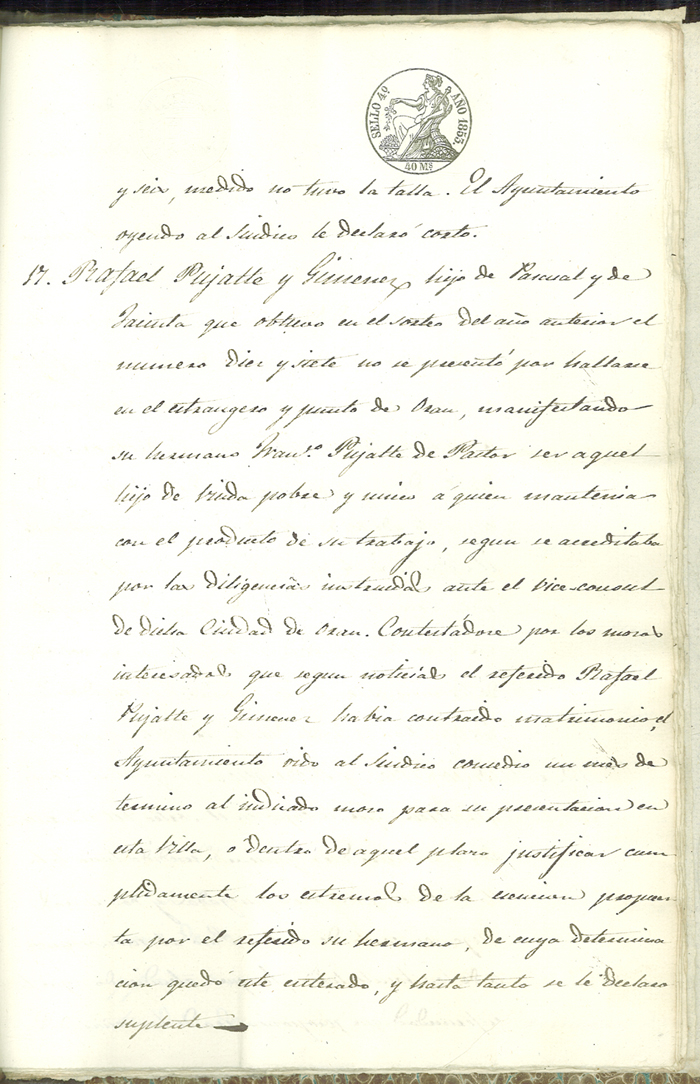 SELLO 4º AÑO 1855.
40 Ms
y seis, medido no tuvo la talla. El Ayuntamiento
oyendo al Sindico le declaró corto.
17. Rafael Pujalte y Gimenez hijo de Pascual y de
Jacinta que obtuvo en el sorteo del año anterior el
numero diez y siete no se presentó por hallarse
en el estrangero y punto de Oran, manifestando
su hermano Franco. Pujalte de Pastor ser aquel
hijo de viuda pobre y unico á quien mantenia
con el producto de su trabajo, segun se acreditaba
por las diligencias instruidas ante el vice-consul
de dicha Ciudad de Oran. Contestádose por los mozos
interesados que segun noticias el referido Rafael
Pujalte y Gimenez habia contraido matrimonio, el
Ayuntamiento oido al Sindico concedio un mes de
termino al indicado mozo para su presentacion en
esta Villa, o dentro de aquel plazo justificar cum
plidamente los estremos de la esencion propues
ta por el referido su hermano, de cuya determina
cion quedó este enterado, y hasta tanto se le declaro
suplente